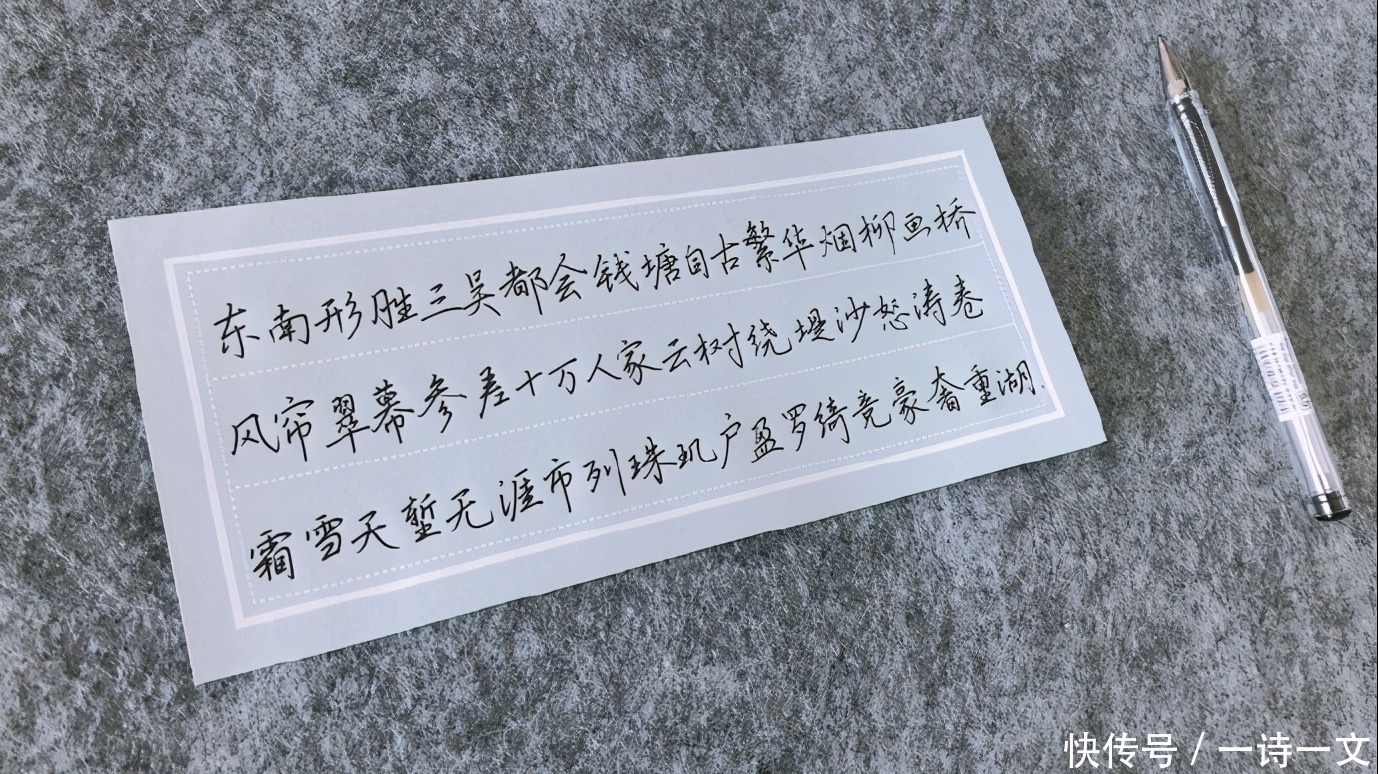 东南形胜三吴都会钱塘自古繁华烟柳画桥
风帘翠幕参差十万人家云树绕堤沙怒涛卷
霜雪天堑无涯市列珠玑户盈罗绮竞豪奢重湖
快传号 / 一诗一文